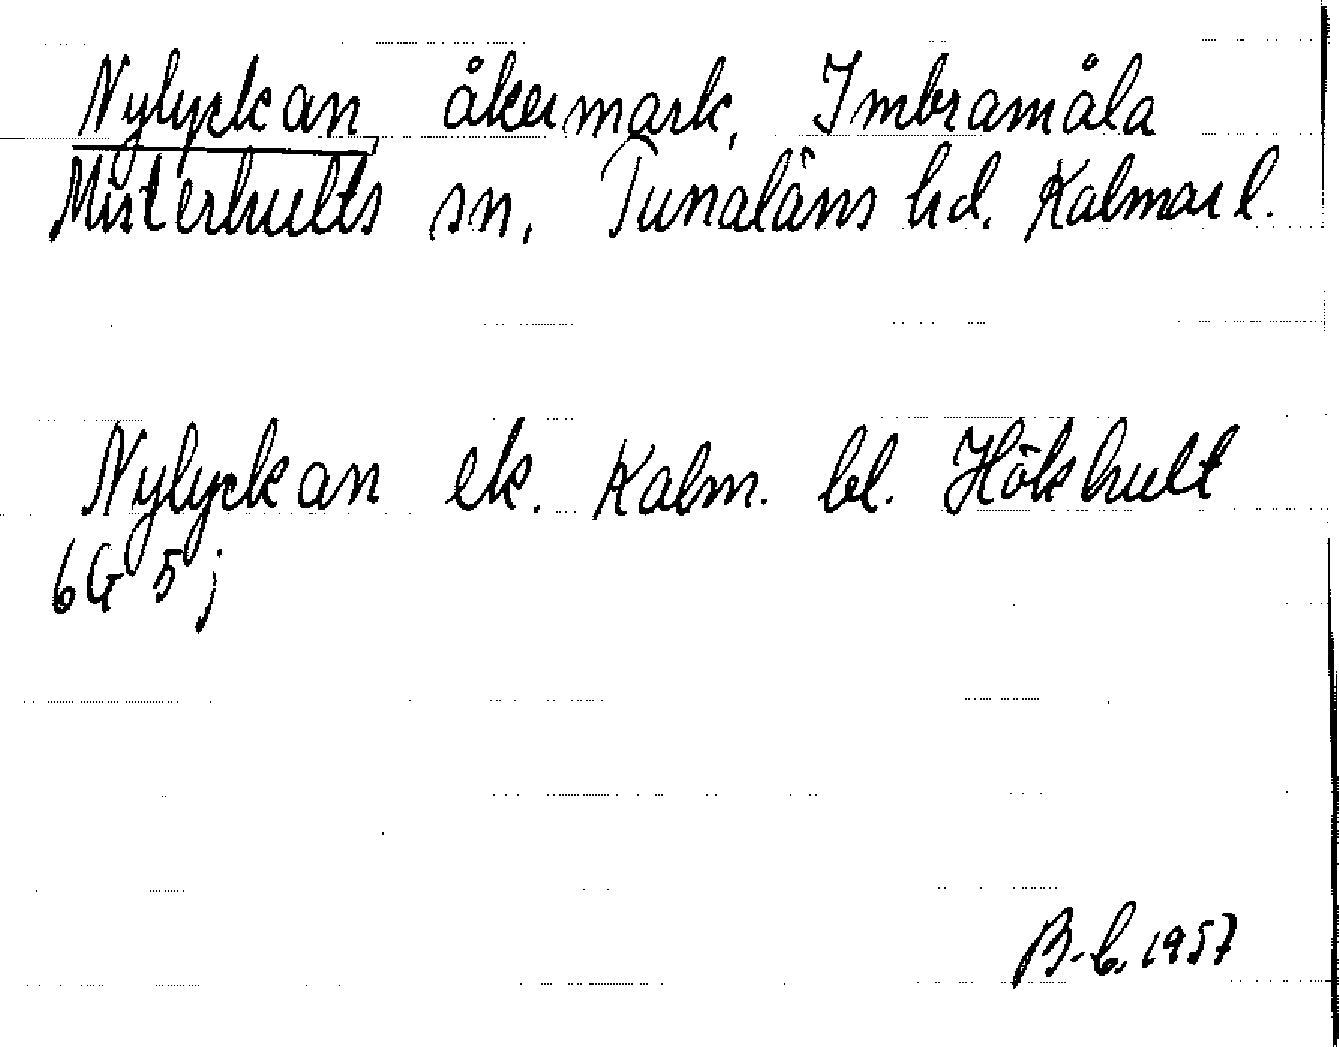 Nylyckan, åkermark, Imbramåla
Misterhults sn, Tunaläns hd. Kalmar l.
Nylyckan ek. Kalm. bl. Hökhult
6G 5j
B-b. 1957